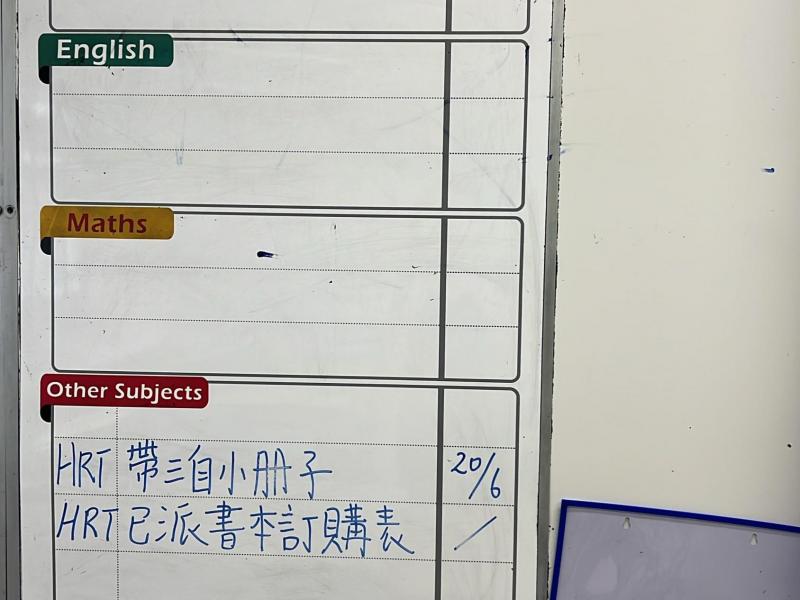 English
Maths
Other Subjects
HRT 帶三自小册子 20/6
HRT 已派書本訂購表 /